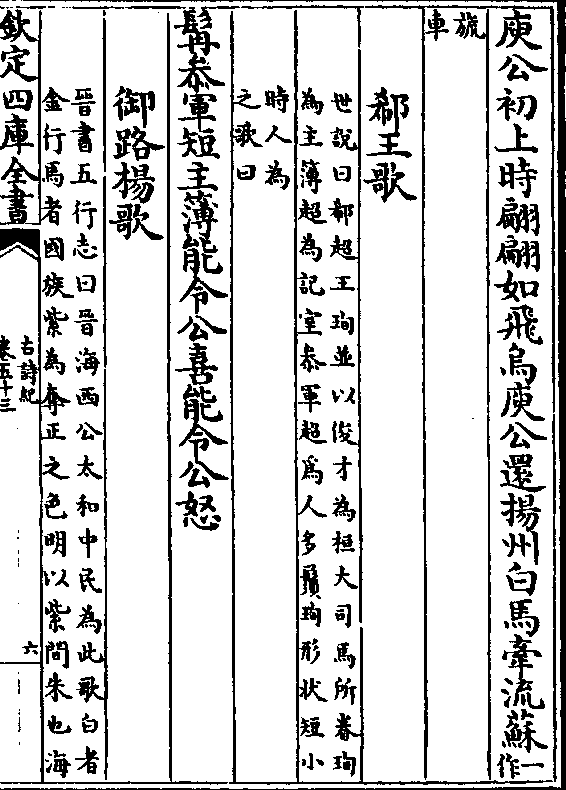 庾公初上時翩翩如飛烏庾公還揚州白馬牽流蘇一作
旐車
郗王歌
世說曰郗超王珣並以俊才為桓大司馬所眷珣
為主簿超為記室叅軍超為人多鬚珣形狀短小
時人為
之歌曰
髯叅軍短主簿能令公喜能令公怒
御路楊歌
晉書五行志曰晉海西公太和中民為此歌白者
金行馬者國族紫為奪正之色明以紫間朱也海
欽定四庫全書
古詩紀
卷五十三
六